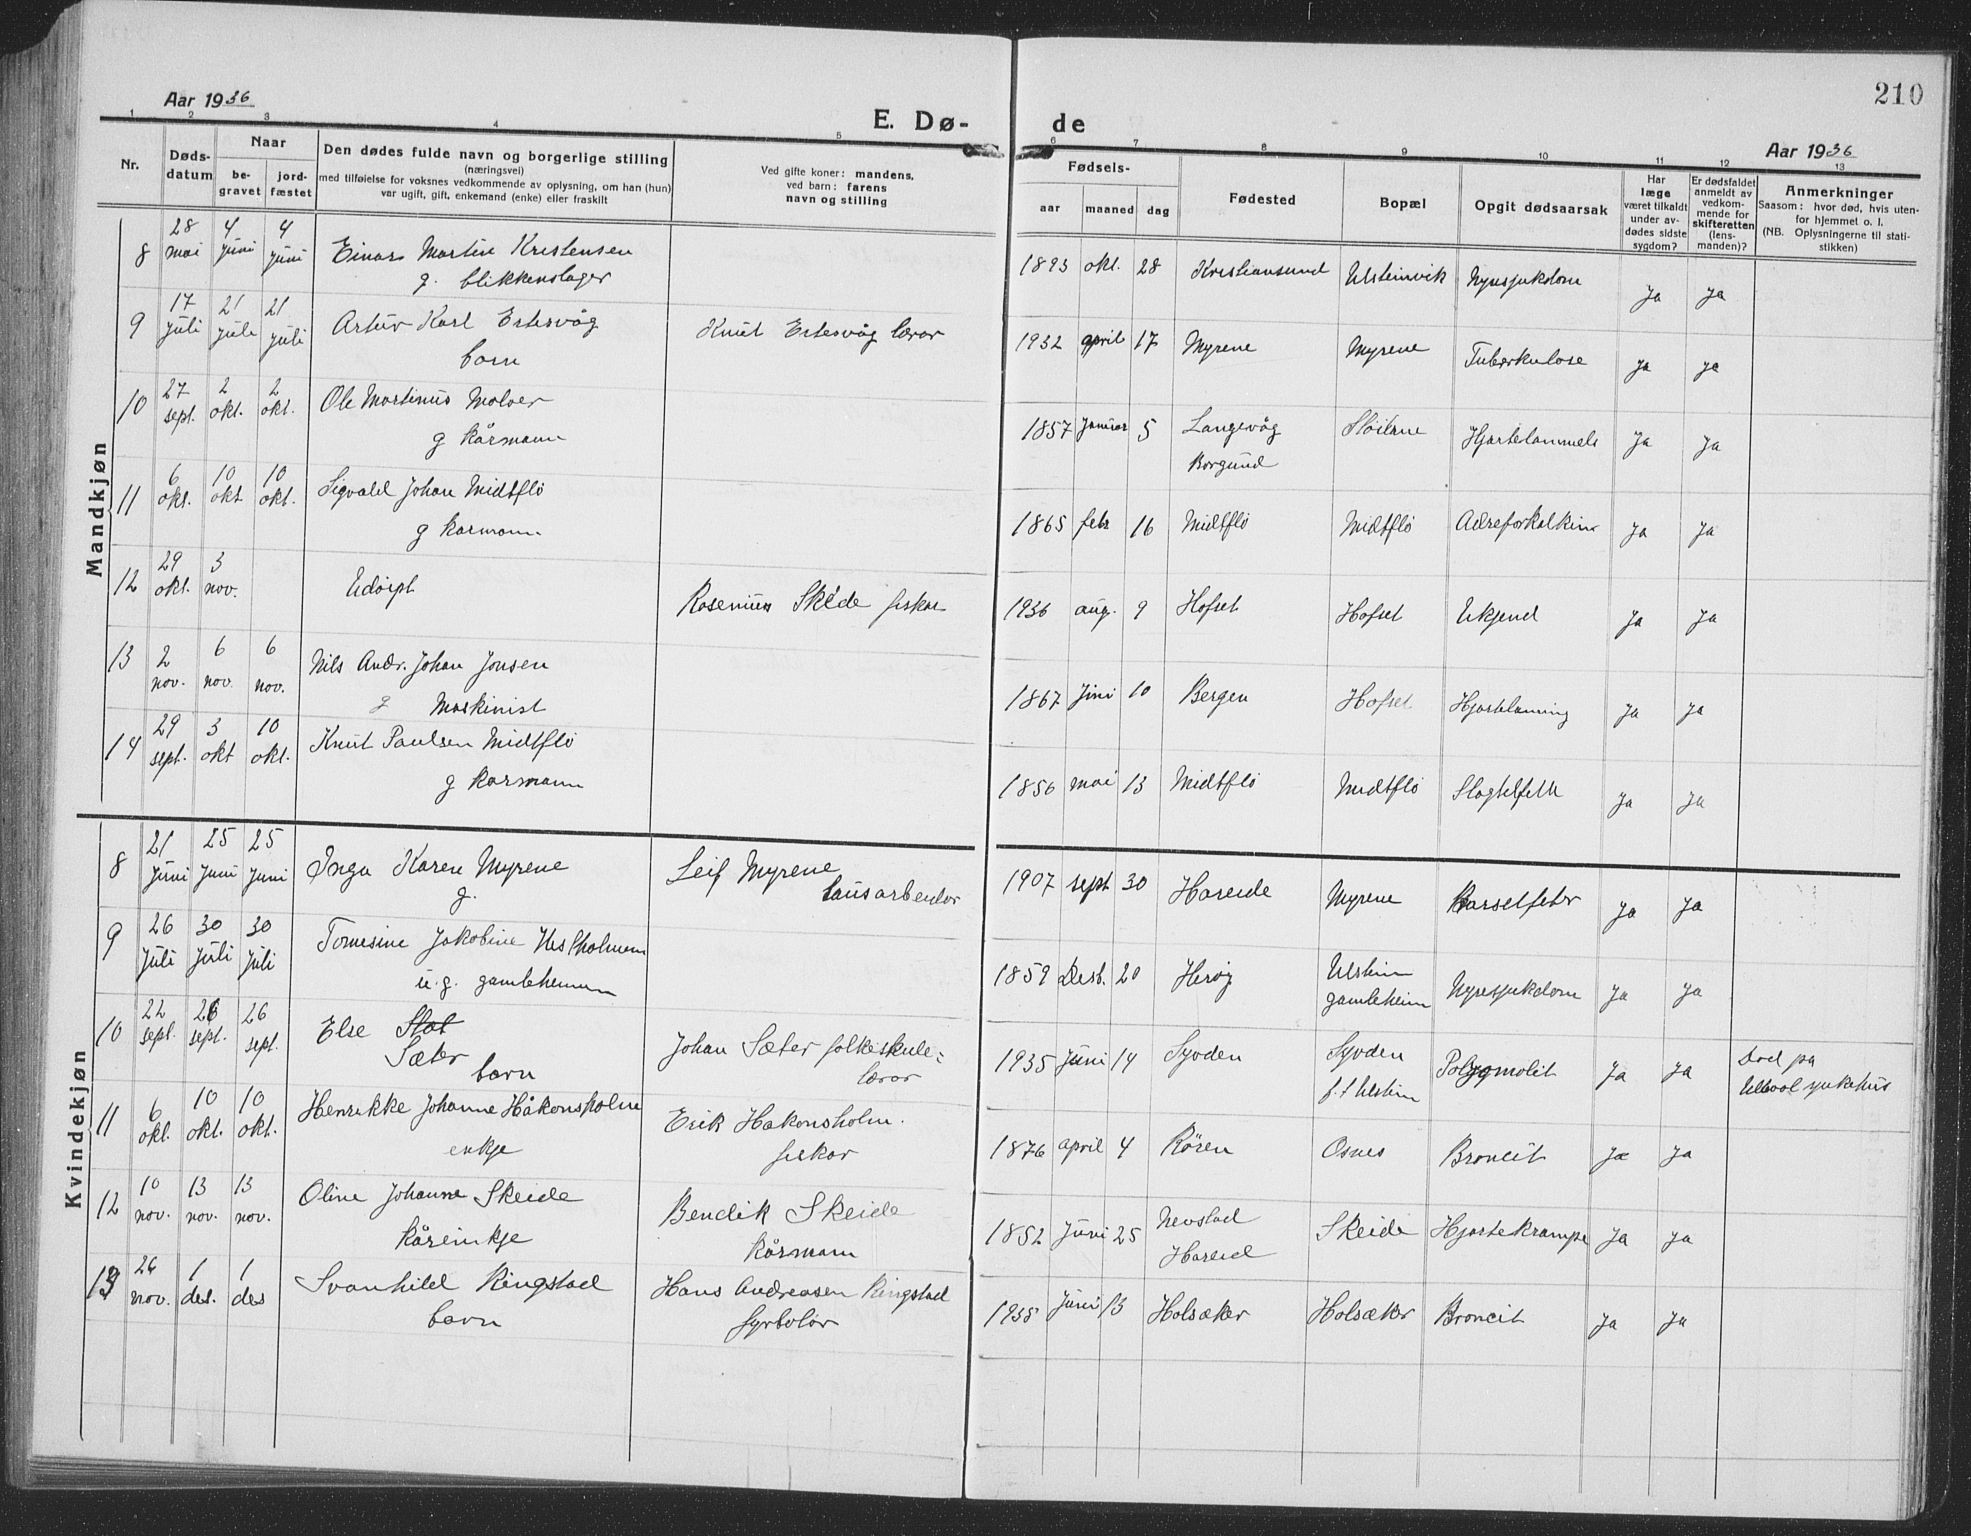 210
Aar 1936
E. Dø-
de
Aar 1936
1 2 3 4 5 6 7 8 9 10 11 12 13
Nr.
Døds-
datum
Naar
be-
gravet
jord-
fæstet
Den dødes fulde navn og borgerlige stilling
(næringsvei)
med tilføielse for voksnes vedkommende av oplysning, om han (hun)
var ugift, gift, enkemand (enke) eller fraskilt
Ved gifte koner: mandens,
ved barn: farens
navn og stilling
Fødsels-
aar
maaned
dag
Fødested
Bopæl
Opgit dødsaarsak
Har
læge
været tilkaldt
under av-
dødes sidste
sygdom?
Er dødsfaldet
anmeldt av
vedkom-
mende for
skifteretten
(lens-
manden)?
Anmerkninger
Saasom: hvor død, hvis uten-
for hjemmet o. l.
(NB. Oplysningerne til stati-
stikken)
Mandkjøn
8 28 mai 4 juni 4 juni Einar Martin Kristensen 1893 okt. 28 Kristiansund Ulsteinvik Nyresjukdom Ja Ja
g. blikkenslager
9 17 juli 21 juli 21 juli Artur Karl Ertesvåg Knut Ertesvåg lærar 1932 april 17 Myrene Myrene Tuberkulose Ja Ja
barn
10 27 sept. 2 okt. 2 okt. Ole Martinus Molver 1857 januar 5 Langevåg Fløilene Hjartelammels Ja Ja
g kårmann Borgund
11 6 okt. 10 okt 10 okt. Sigvald Johan Midtflø 1865 febr 16 Midtflø Midtflø Adreforkalking Ja Ja
g karmann.
12 29 okt. 3 nov. Udøipt Rasmus Skeide fiskar 1936 aug. 9 Hofset Hofset Ukjend Ja Ja
13 2 nov. 6 nov. 6 nov. Nils Andr. Johan Jonsen 1867 juni 10 Bergen Hofset Hjartelaming Ja Ja
g Maskinist
14 29 sept. 3 okt 10 okt. Knut Paulsen Midtflø 1856 mai 13 Midtflø Midtflø Slagtilfelle Ja Ja
g karmann
Kvindekjøn
8 21 juni 25 juni 25 juni Inga Karen Myrene Leif Myrene 1907 sept 30 Hareide Myrene Barselfeber Ja Ja
g. lausarbeidar
9 26 juli 30 juli 30 juli Tomesine Jakobine Hestholmen 1859 Desb. 20 Herøy Ulstein Nyresjukdom Ja Ja
u.g. gamleheimen gamleheim
10 22 sept. 26 sept. 26 sept. Else Slot Johan Sæter folkeskule- 1935 juni 14 Syvden Syvden Ja Ja Død på
Sæter lærar f. t Ulstein Ullevål sjukehus
barn
11 6 okt. 10 okt. 10 okt. Henrikke Johanne Håkonsholm Erik Hakonsholm. 1876 april 4 Røren Osnes Broncit Ja Ja
enkje fiskar
12 10 nov. 13 nov. 13 nov. Oline Johanne Skeide Bendik Skeide 1852 juni 25 Nevstad Skeide Hjartekrampe Ja Ja
kårenkje kårmann Hareid
13 26 nov. 1 des. 1 des Svanhild Ringstad Hans Andreasen Ringstad 1935 juni 13 Holsæker Holsæker Broncit Ja Ja
barn fyrbøtar